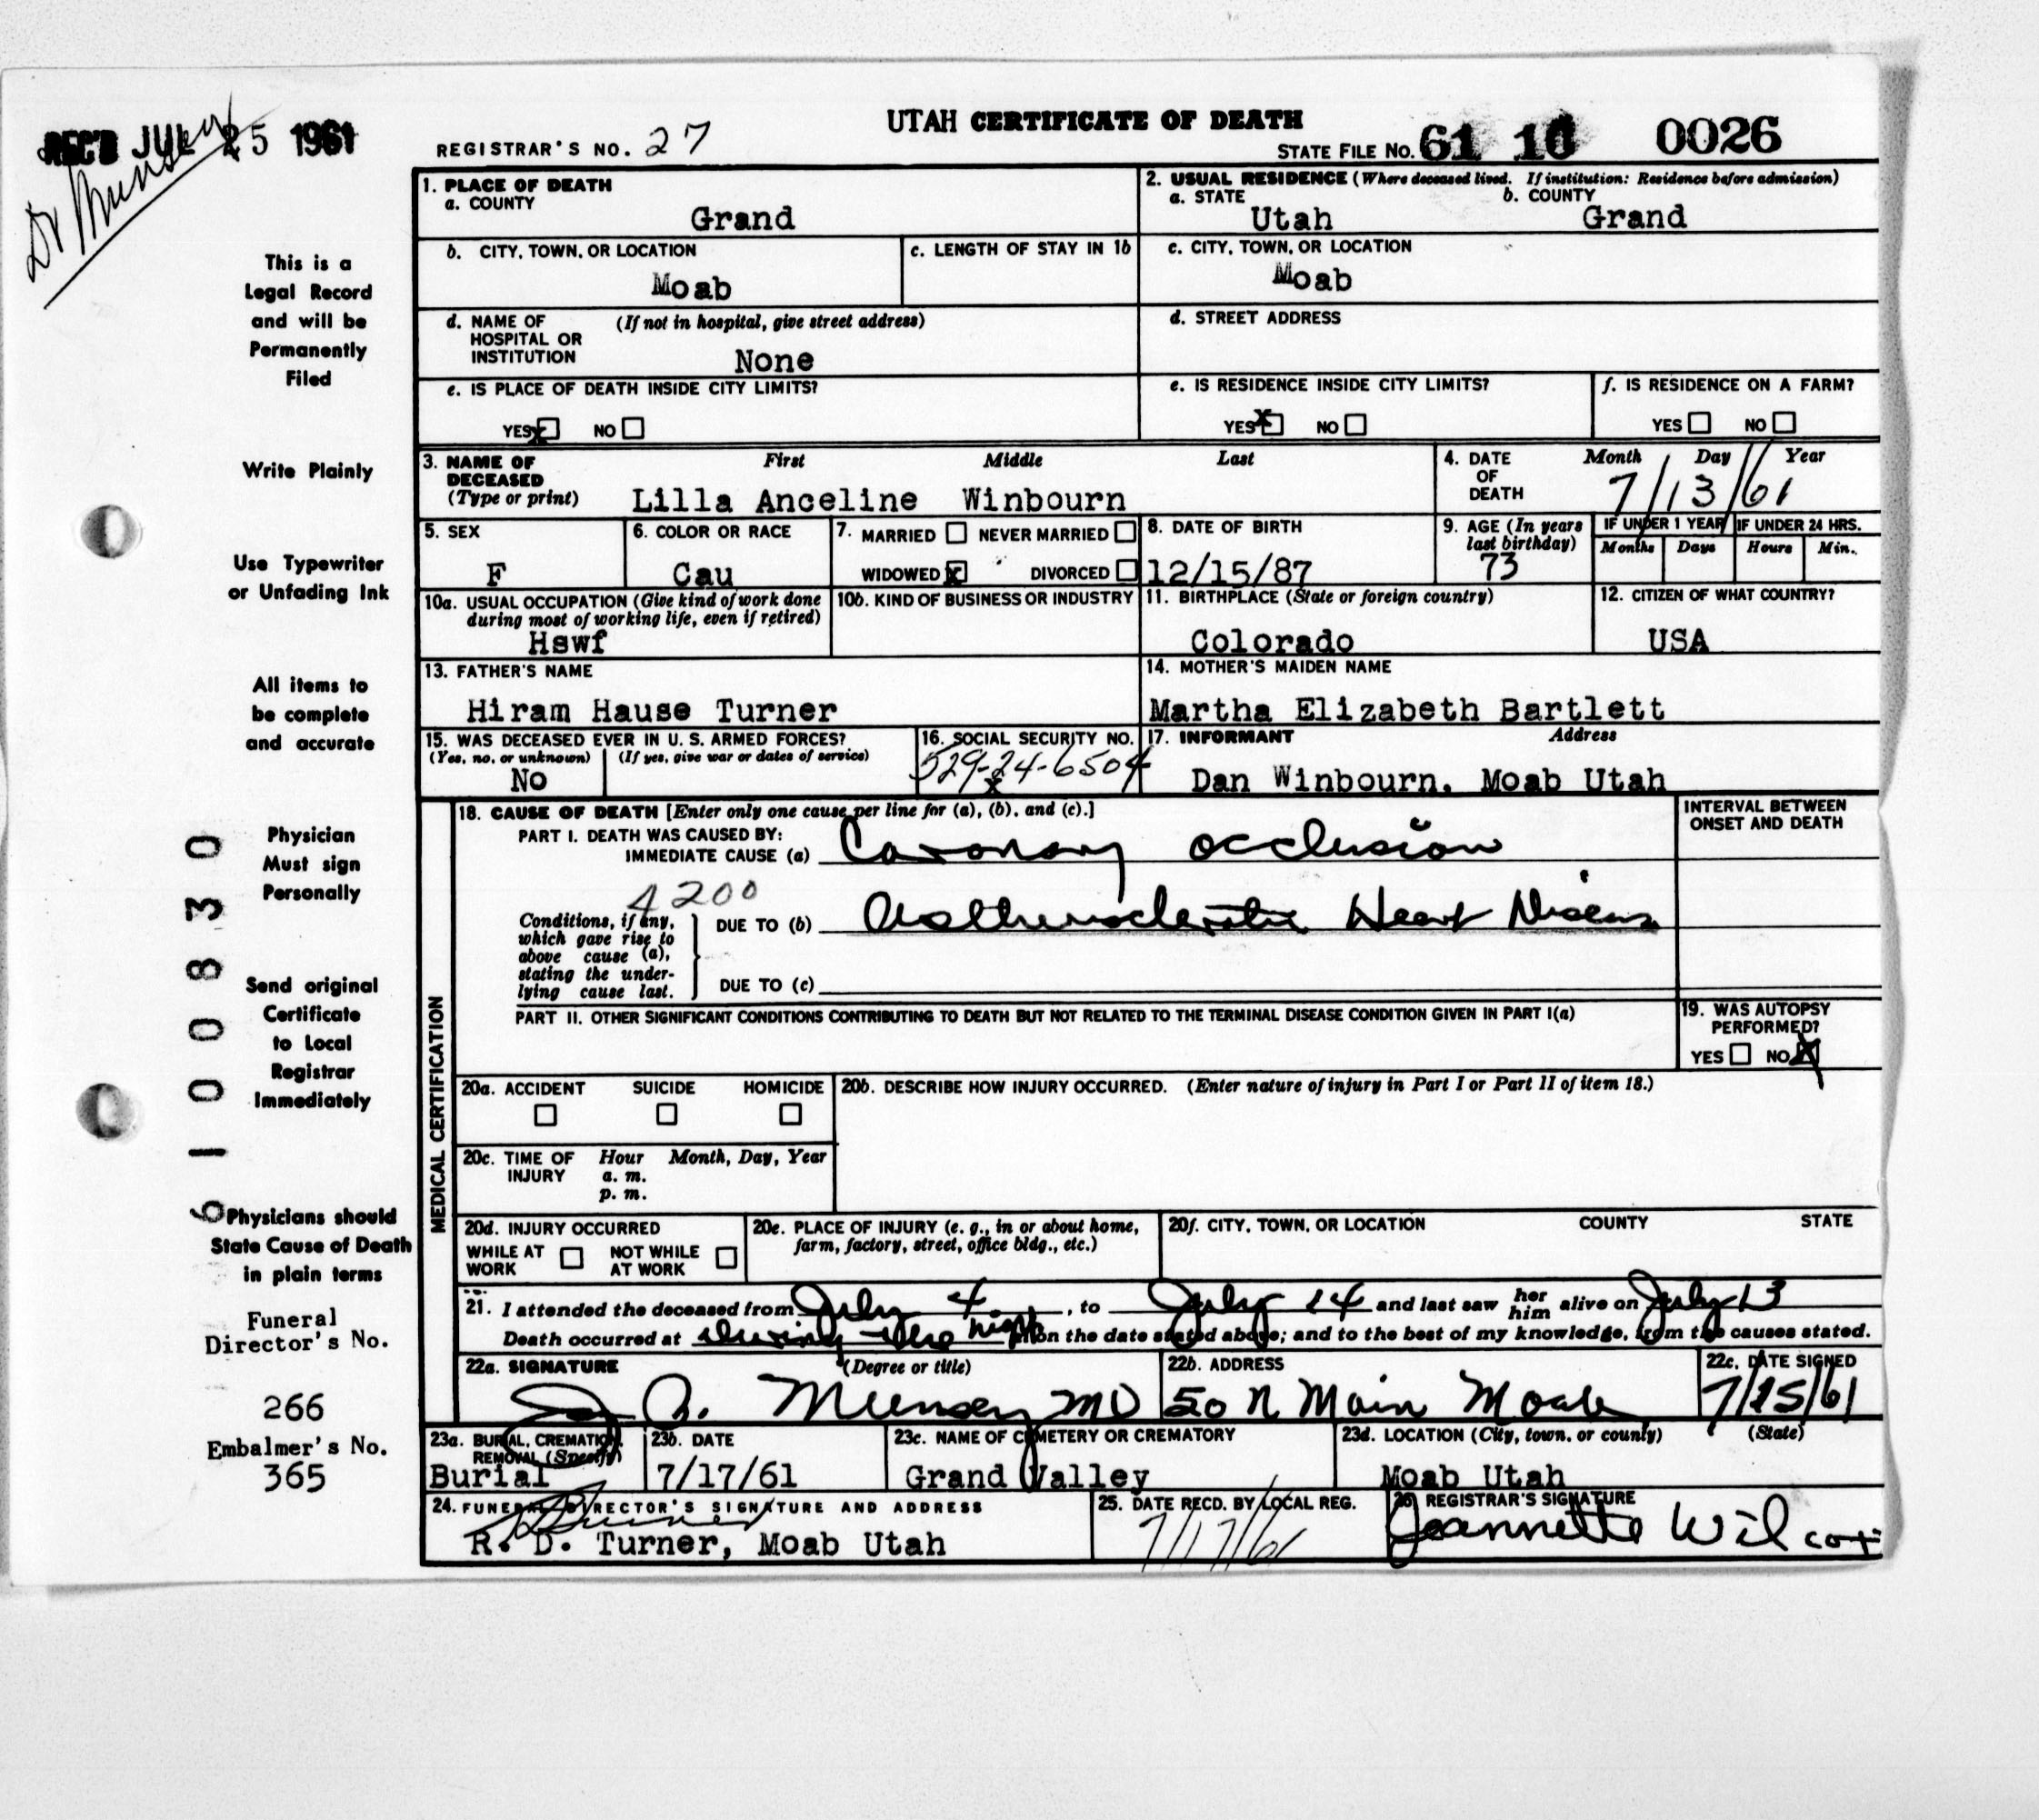 REC'D JUL 25 1961
Dr Munsey
UTAH CERTIFICATE OF DEATH
REGISTRAR'S NO. 27
STATE FILE No. 61 10 0026
1. PLACE OF DEATH
a. COUNTY
Grand
2. USUAL RESIDENCE (Where deceased lived. If institution: Residence before admission)
a. STATE b. COUNTY
Utah Grand
b. CITY, TOWN, OR LOCATION
Moab
c. LENGTH OF STAY IN 1b
c. CITY, TOWN, OR LOCATION
Moab
d. NAME OF HOSPITAL OR INSTITUTION (If not in hospital, give street address)
None
d. STREET ADDRESS
e. IS PLACE OF DEATH INSIDE CITY LIMITS?
YES x NO
e. IS RESIDENCE INSIDE CITY LIMITS?
YES x NO
f. IS RESIDENCE ON A FARM?
YES NO
3. NAME OF DECEASED (Type or print)
First Middle Last
Lilla Anceline Winbourn
4. DATE OF DEATH
Month Day Year
7/13/61
5. SEX
F
6. COLOR OR RACE
Cau
7. MARRIED NEVER MARRIED
WIDOWED x DIVORCED
8. DATE OF BIRTH
12/15/87
9. AGE (In years last birthday)
73
IF UNDER 1 YEAR IF UNDER 24 HRS.
Months Days Hours Min.
10a. USUAL OCCUPATION (Give kind of work done during most of working life, even if retired)
Hswf
10b. KIND OF BUSINESS OR INDUSTRY
11. BIRTHPLACE (State or foreign country)
Colorado
12. CITIZEN OF WHAT COUNTRY?
USA
13. FATHER'S NAME
Hiram Hause Turner
14. MOTHER'S MAIDEN NAME
Martha Elizabeth Bartlett
15. WAS DECEASED EVER IN U. S. ARMED FORCES?
(Yes, no, or unknown) (If yes, give war or dates of service)
No
16. SOCIAL SECURITY NO.
529-24-6504
x
17. INFORMANT Address
Dan Winbourn, Moab Utah
MEDICAL CERTIFICATION
18. CAUSE OF DEATH [Enter only one cause per line for (a), (b), and (c).]
INTERVAL BETWEEN ONSET AND DEATH
PART I. DEATH WAS CAUSED BY:
IMMEDIATE CAUSE (a) Coronary occlusion
4200
Conditions, if any, which gave rise to above cause (a), stating the underlying cause last.
DUE TO (b) Arteriosclerotic Heart Disease
DUE TO (c)
PART II. OTHER SIGNIFICANT CONDITIONS CONTRIBUTING TO DEATH BUT NOT RELATED TO THE TERMINAL DISEASE CONDITION GIVEN IN PART I(a)
19. WAS AUTOPSY PERFORMED?
YES NO X
20a. ACCIDENT SUICIDE HOMICIDE
20b. DESCRIBE HOW INJURY OCCURRED. (Enter nature of injury in Part I or Part II of item 18.)
20c. TIME OF INJURY Hour Month, Day, Year
a. m.
p. m.
20d. INJURY OCCURRED
WHILE AT WORK NOT WHILE AT WORK
20e. PLACE OF INJURY (e. g., in or about home, farm, factory, street, office bldg., etc.)
20f. CITY, TOWN, OR LOCATION COUNTY STATE
21. I attended the deceased from July 4, to July 14 and last saw her him alive on July 13
Death occurred at during the night m on the date stated above; and to the best of my knowledge, from the causes stated.
22a. SIGNATURE (Degree or title)
Munsey MD
22b. ADDRESS
50 N Main Moab
22c. DATE SIGNED
7/15/61
23a. BURIAL, CREMATION, REMOVAL (Specify)
Burial
23b. DATE
7/17/61
23c. NAME OF CEMETERY OR CREMATORY
Grand Valley
23d. LOCATION (City, town, or county) (State)
Moab Utah
24. FUNERAL DIRECTOR'S SIGNATURE AND ADDRESS
R. D. Turner, Moab Utah
25. DATE RECD. BY LOCAL REG.
7/17/61
26. REGISTRAR'S SIGNATURE
Jeannette Wilcox
This is a
Legal Record
and will be
Permanently
Filed
Write Plainly
Use Typewriter
or Unfading Ink
All items to
be complete
and accurate
Physician
Must sign
Personally
Send original
Certificate
to Local
Registrar
Immediately
Physicians should
State Cause of Death
in plain terms
Funeral
Director's No.
266
Embalmer's No.
365
6100830